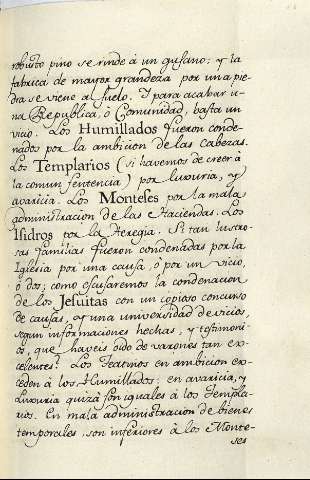 robusto pino se rinde à un gusano; y la
fabrica de mayor grandeza por una pie
dra se viene al suelo. Y para acabar u
na Republica, ò Comunidad, basta un
vicio. Los Humillados fueron conde
nados por la ambicion de las cabezas.
Los Templarios (si havemos de creer à
la comun sentencia) por luxuria, y
avaricia. Los Monteses por la mala
administracion de las Haciendas. Los
Isidros por la Heregia. Si tan lustro
sas familias fueron condenadas por la
Iglesia por una causa, ò por un vicio,
ò dos; como escusaremos la condenacion
de los Jesuitas con un copioso concurso
de causas, y una universidad de vicios,
segun informaciones hechas, y testimoni
os, que haveis oido de varones tan ex
celentes? Los Teatinos en ambicion ex
ceden à los Humillados: en avaricia, y
Luxuria quizà son iguales à los Templa
rios. En mala administracion de bienes
temporales, son inferiores à los Monte
ses